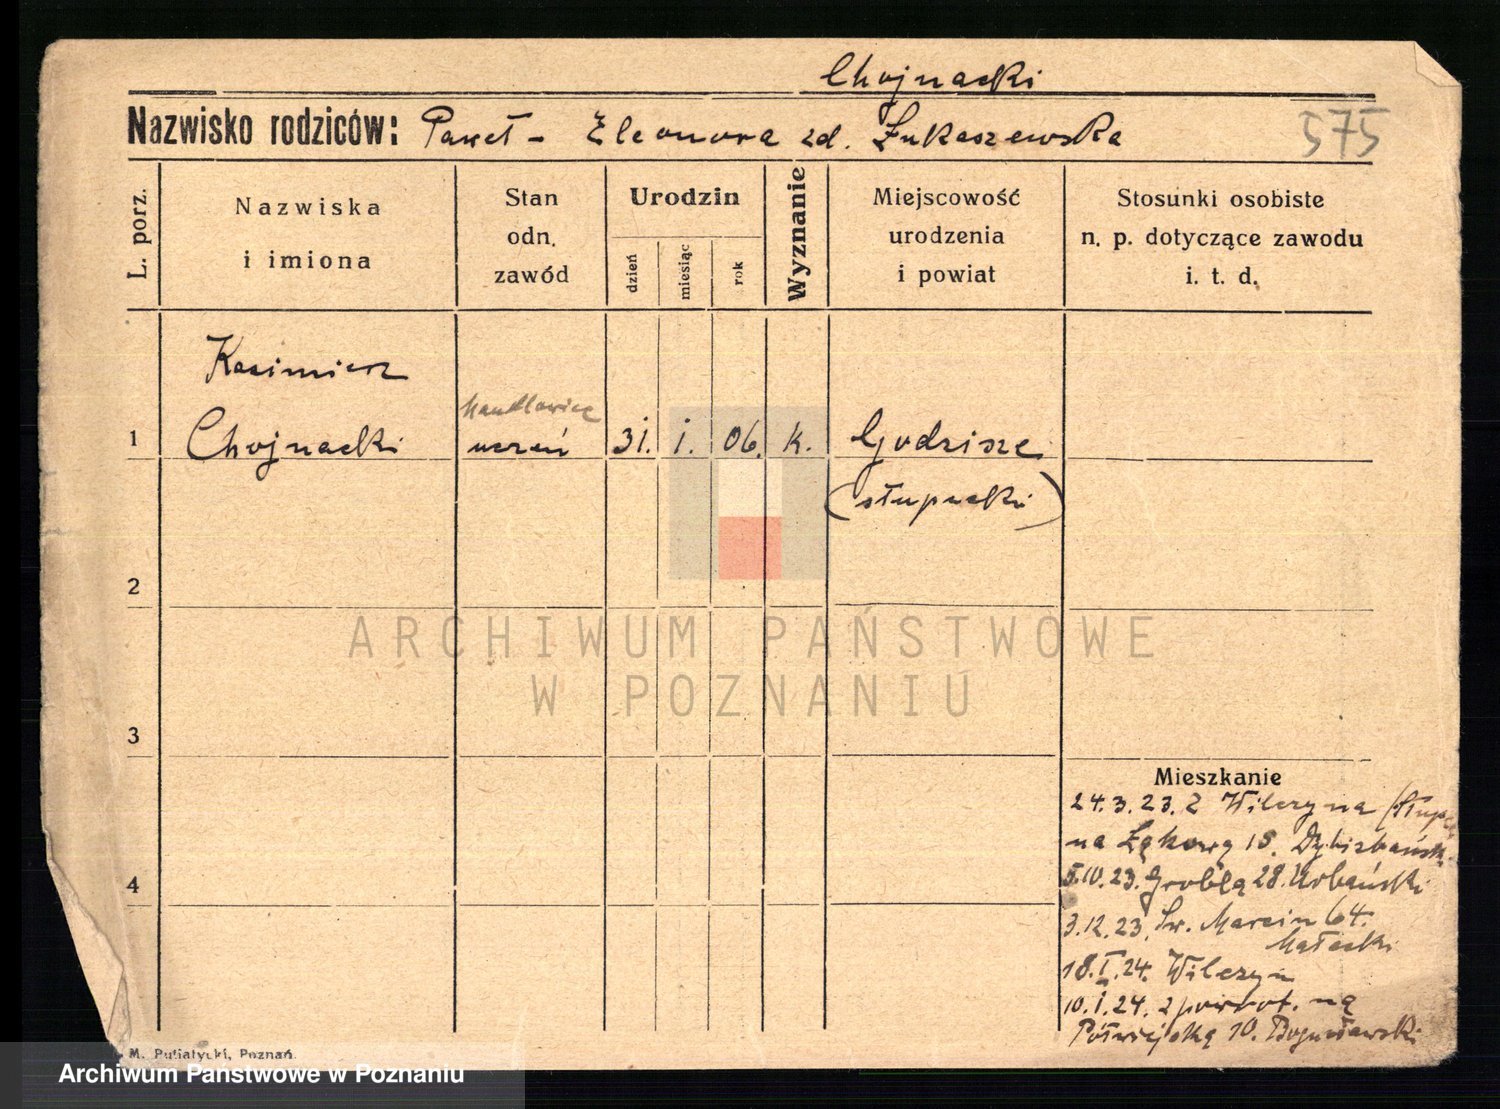 Chojnacki
Nazwisko rodziców: Paweł - Eleonora zd. Łukaszewska
575
L. porz.
Nazwiska
i imiona
Stan
odn.
zawód
Urodzin
dzień
miesiąc
rok
Wyznanie
Miejscowość
urodzenia
i powiat
Stosunki osobiste
n. p. dotyczące zawodu
i. t. d.
Kazimierz
handlowiec
1 Chojnacki uczeń 31. 1. 06. k. Godzisze
(słupecki)
2
ARCHIWUM PAŃSTWOWE
W POZNANIU
3
Mieszkanie
24.3.23. z Wilczyna (Słupca
na Łąkową 15.
5.10.23. Groblą 28. Urbański
3.12.23. Św. Marcin 64.
Małecki
4
18.I.24. Wilczyn
10.I.24. z powrot. na
Półwiejską 10. Bogusławski
M. Putiatycki, Poznań.
Archiwum Państwowe w Poznaniu